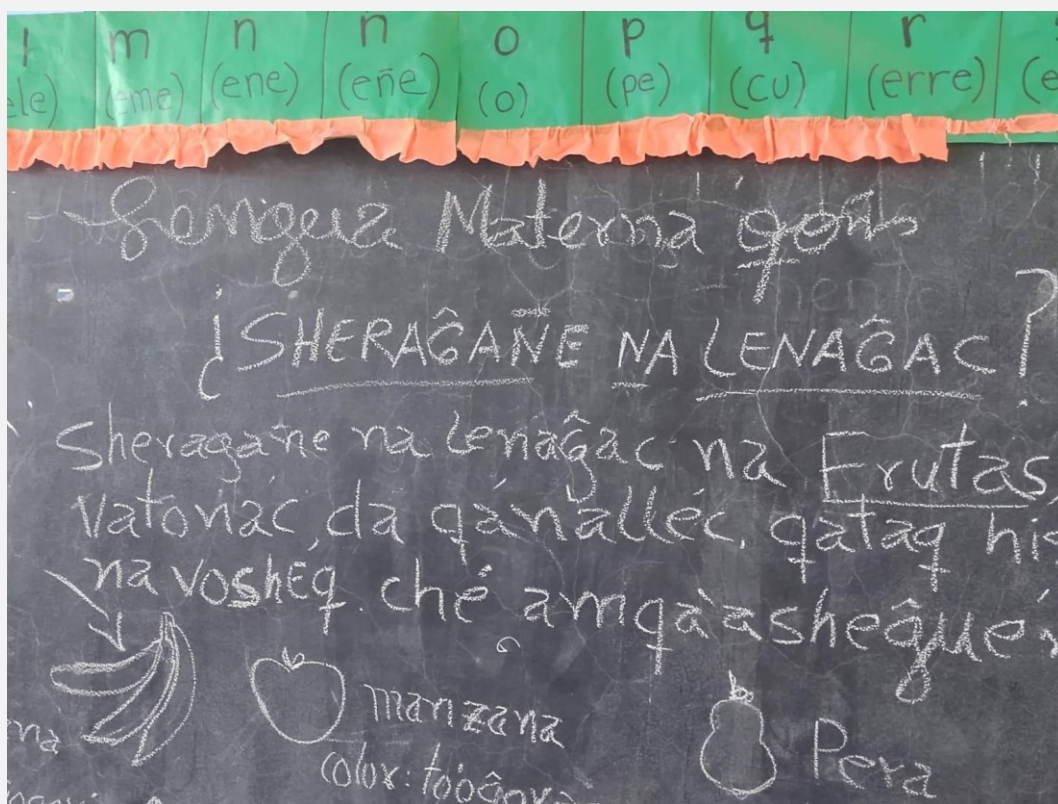 l m n ñ o p q r
ele) (eme) (ene) (eñe) (o) (pe) (cu) (erre) (e
Lengua Materna qom
¿SHERAĜAÑE NA LENAĜAC?
Sheragañe na lenaĝac na Frutas
vatonác, da qánalléc, qataq
na vosheq. ché amqáasheĝue
manzana
color:
Pera